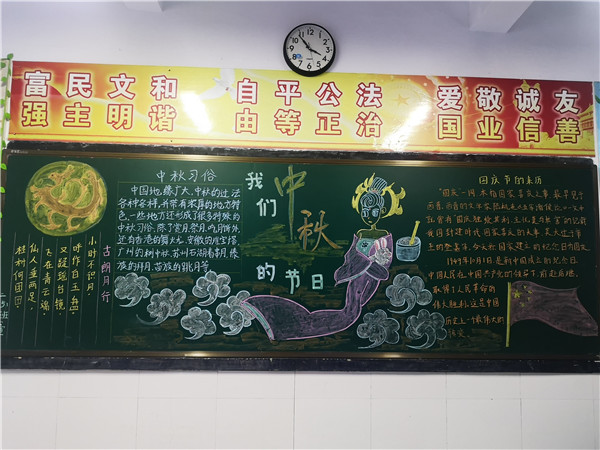 富民文和 自平公法 爱敬诚友
强主明谐 由等正治 国业信善
中秋习俗
中国地缘广大,中秋的过法
各种各样,并带有浓厚的地方特
色。一些地方还形成了很多特殊的
中秋习俗。除了赏月、祭月、吃月饼外,
还有香港的舞火龙、安徽的堆宝塔、
广州的树中秋、苏州石湖看串月、傣
族的拜月、苗族的跳月等
古朗月行
小时不识月,
呼作白玉盘。
又疑瑶台镜,
飞在青云端。
仙人垂两足,
桂树何团团。
我们
中秋
的节日
国庆节的来历
1949年10月1日是新中国成立的纪念日
中国人民在中国共产党的领导下,前赴后继,
取得了人民革命的
伟大胜利,这是中国
历史上一个最伟大的
转变